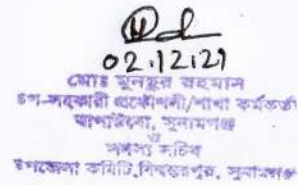 02.12.21
মোঃ মুনছুর রহমান
উপ-সহকারী প্রকৌশলী/শাখা কর্মকর্তা
বাপাউবো, সুনামগঞ্জ
ও
সদস্য সচিব
উপজেলা কমিটি, বিশ্বম্ভরপুর, সুনামগঞ্জ